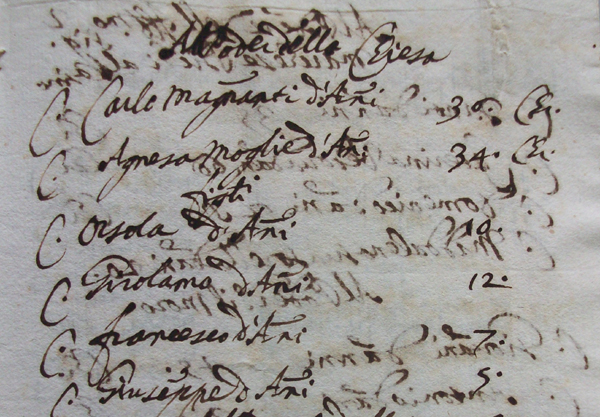 della Chiesa
C. Carlo Magnanti d'Añi 36 Ch.
C. Agnesa Moglie d'Añi 34. Ch.
figli
C. Orsola d'Añi
C. Girolama d'Añi 12.
C. francesco d'Añi 7.
C. Giuseppe d'Añi 5.